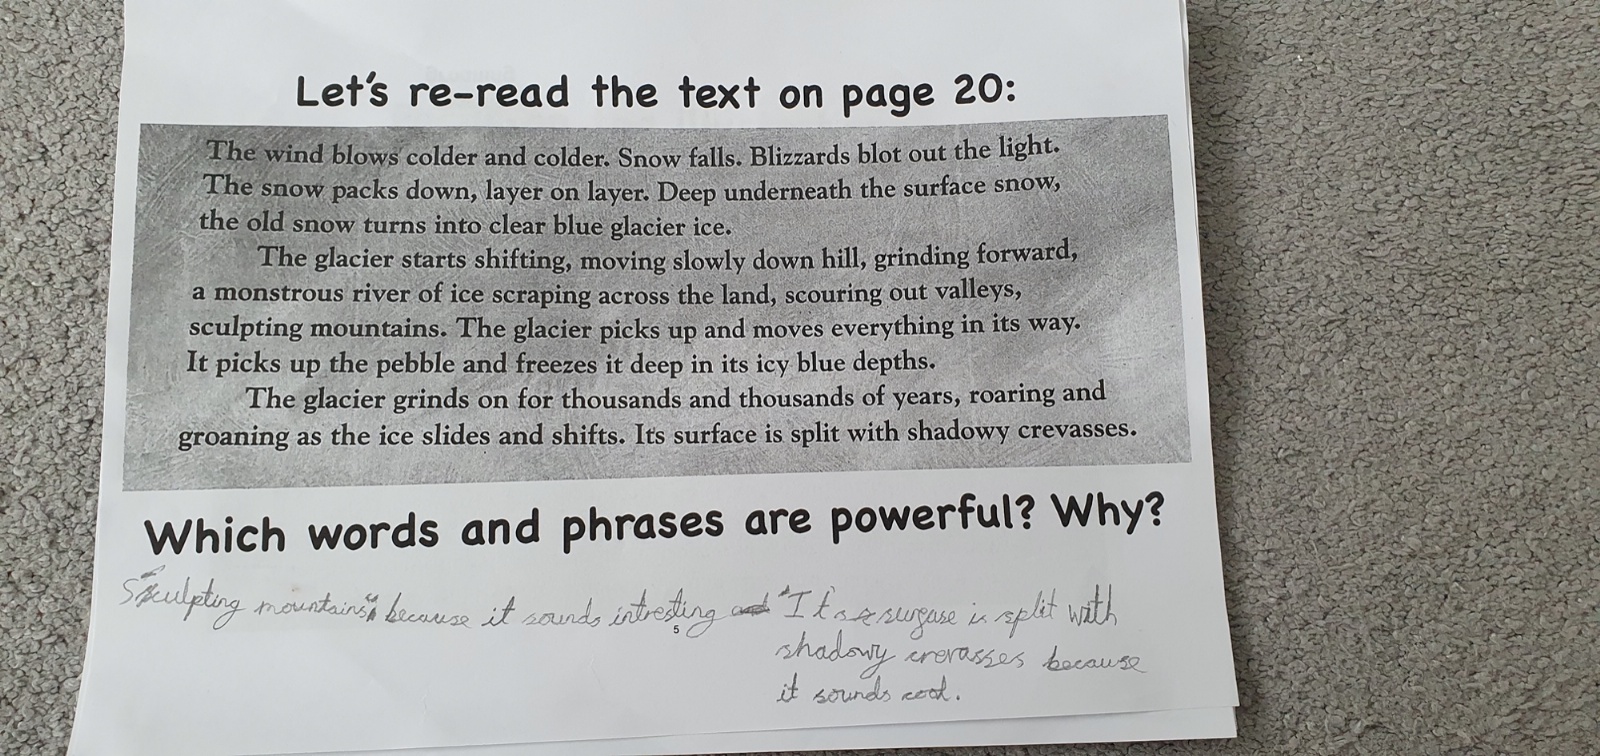 Let's re-read the text on page 20:
The wind blows colder and colder. Snow falls. Blizzards blot out the light.
The snow packs down, layer on layer. Deep underneath the surface snow,
the old snow turns into clear blue glacier ice.
The glacier starts shifting, moving slowly down hill, grinding forward,
a monstrous river of ice scraping across the land, scouring out valleys,
sculpting mountains. The glacier picks up and moves everything in its way.
It picks up the pebble and freezes it deep in its icy blue depths.
The glacier grinds on for thousands and thousands of years, roaring and
groaning as the ice slides and shifts. Its surface is split with shadowy crevasses.
Which words and phrases are powerful? Why?
"Sculpting mountains" because it sounds intresting "Its surgase is split with
shadowy crevasses because
it sounds cool.
5